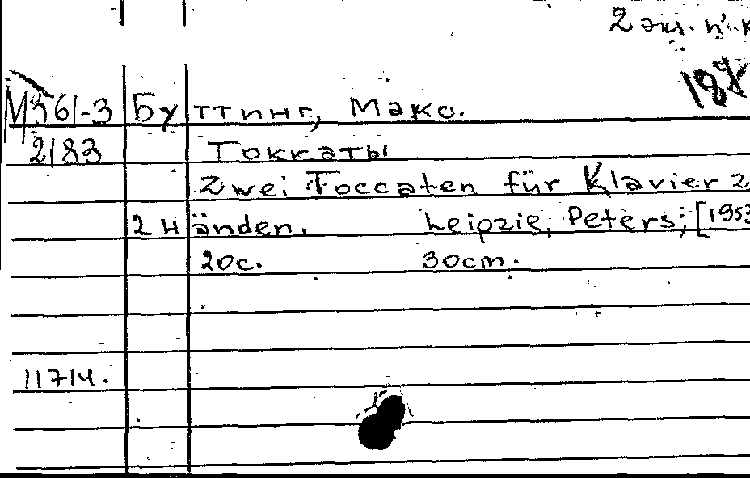 2 экз. н.к
М361-3 Буттинг, Макс.
2183 Токкаты
Zwei Toccaten für Klavier z
2 Händen. Leipzig, Peters, [1953
20с. 30cm.
11714.